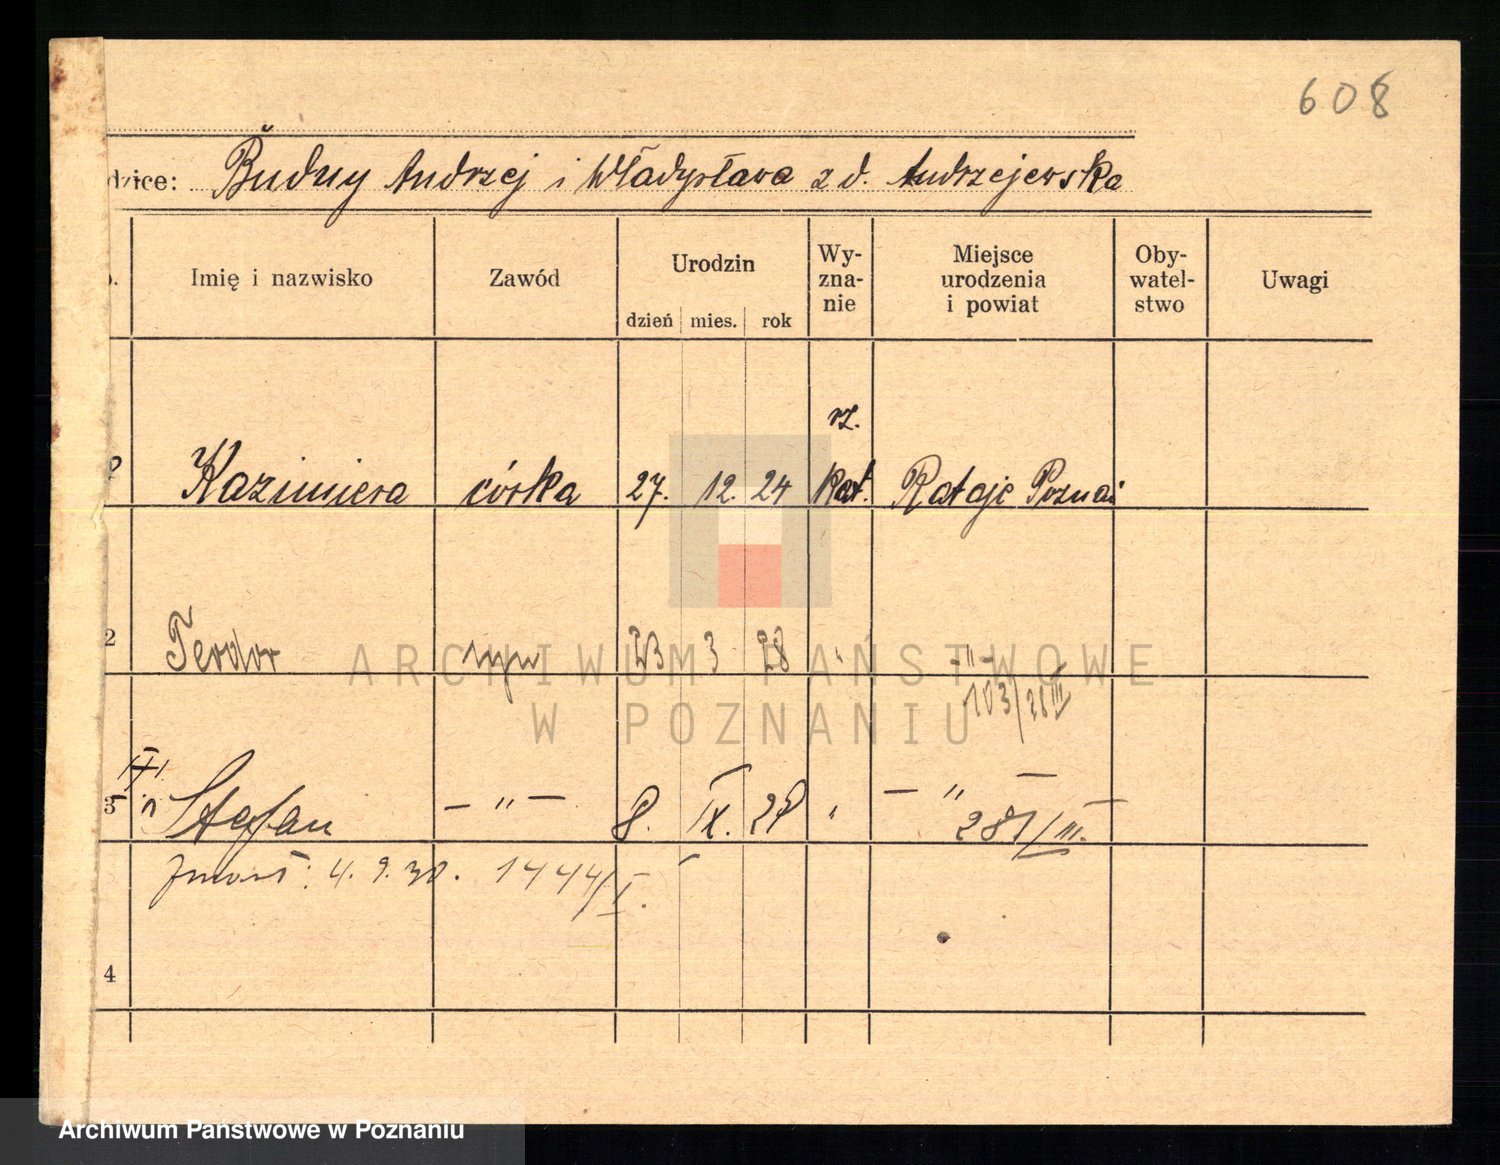 608
dzice: Budny Andrzej i Władysława z d. Andrzejewska
Imię i nazwisko Zawód Urodzin dzień mies. rok Wy-zna-nie Miejsce urodzenia i powiat Oby-watel-stwo Uwagi
rz.
Kazimiera córka 27. 12. 24 Kat. Rataje Poznań
2 Teodor syn 23 3 28 " -"-
103/28 III
3 Stefan - " - 8. IX. 29 " - " -
281/III.
zmarł: 4. 9. 30. 1444/I.
4
ARCHIWUM PAŃSTWOWE
W POZNANIU
Archiwum Państwowe w Poznaniu